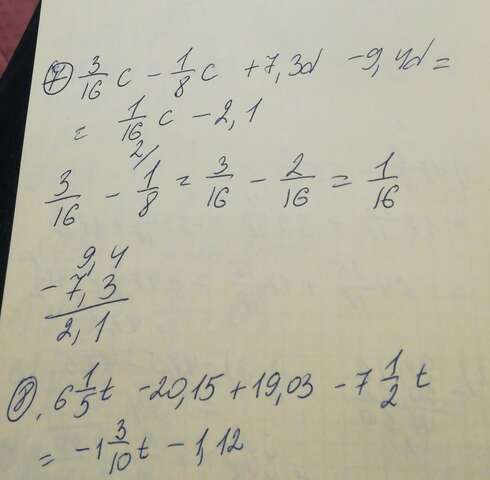 7) 3/16 c - 1/8 c + 7,3d - 9,4d =
= 1/16 c - 2,1
2/
3/16 - 1/8 = 3/16 - 2/16 = 1/16
9,4
- 7,3
2,1
8). 6 1/5 t - 20,15 + 19,03 - 7 1/2 t
= -1 3/10 t - 1,12